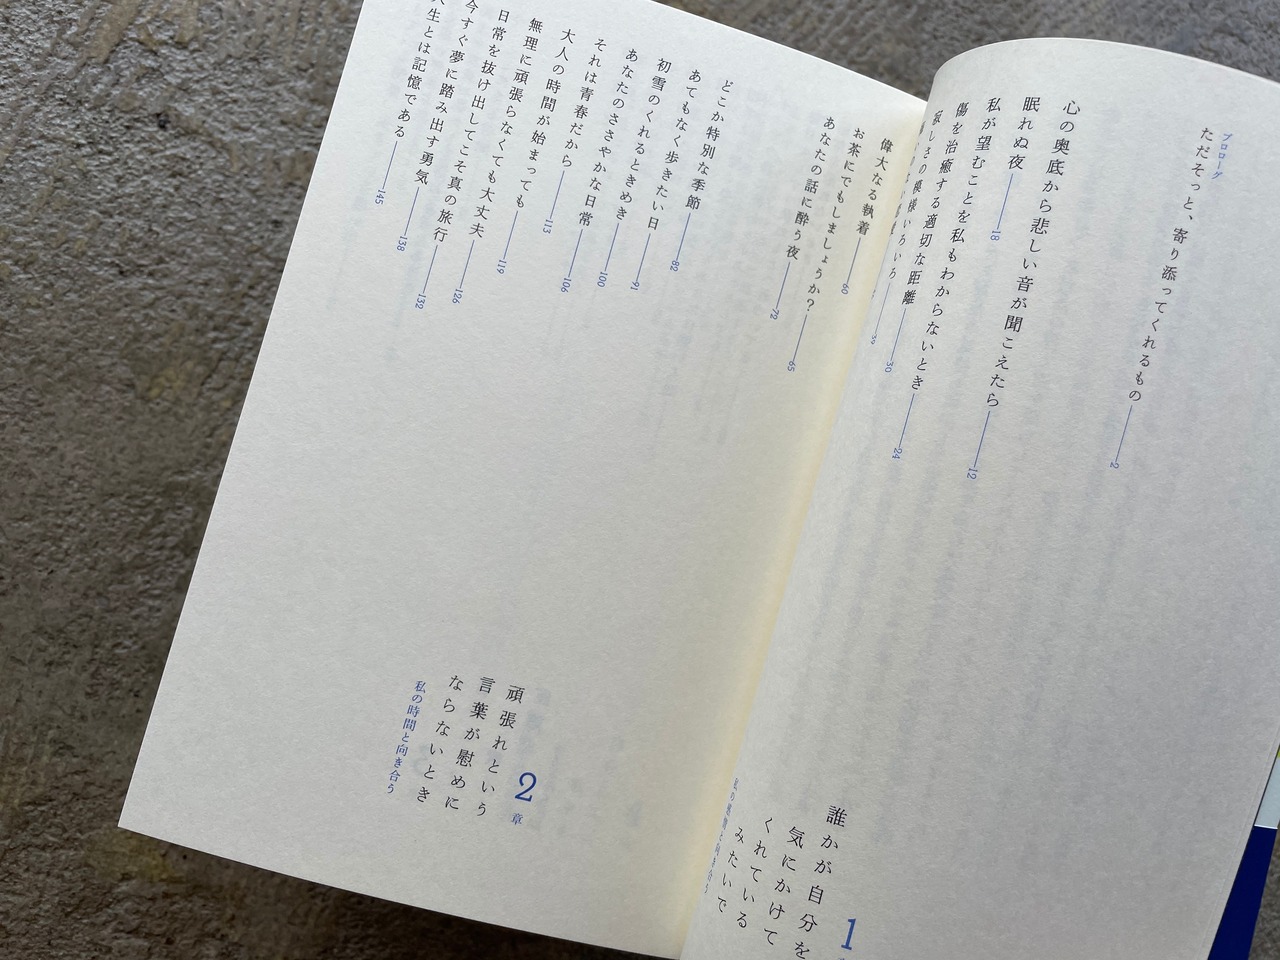 プロローグ
ただそっと、寄り添ってくれるもの 2
1
誰かが自分を
気にかけて
くれている
みたいで
心の奥底から悲しい音が聞こえたら 12
眠れぬ夜 18
私が望むことを私もわからないとき 24
傷を治癒する適切な距離 30
寂しさの模様いろいろ
偉大なる執着 60
お茶にでもしましょうか? 65
あなたの話に酔う夜 72
2章
頑張れという
言葉が慰めに
ならないとき
私の時間と向き合う
どこか特別な季節 82
あてもなく歩きたい日 91
初雪のくれるときめき 100
あなたのささやかな日常 106
それは青春だから 113
大人の時間が始まっても 119
無理に頑張らなくても大丈夫 126
日常を抜け出してこそ真の旅行 132
今すぐ夢に踏み出す勇気 138
人生とは記憶である 145